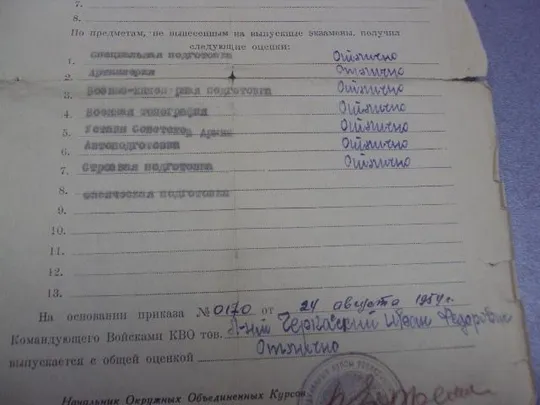 7.
8.
По предметам, не вынесенным на выпускные экзамены, получил
следующие оценки:
1. Специальная подготовка Отлично
2. Артиллерия Отлично
3. Военно-инженерная подготовка Отлично
4. Военная топография Отлично
5. Уставы Советской Армии Отлично
6. Автоподготовка Отлично
7. Строевая подготовка Отлично
8. Физическая подготовка
9.
10.
11.
12.
13.
На основании приказа № 0170 от 24 августа 1954 г.
Командующего Войсками КВО тов. Л-нт Черкасский Иван Федорович
выпускается с общей оценкой Отлично
Начальник Окружных Объединенных Курсов